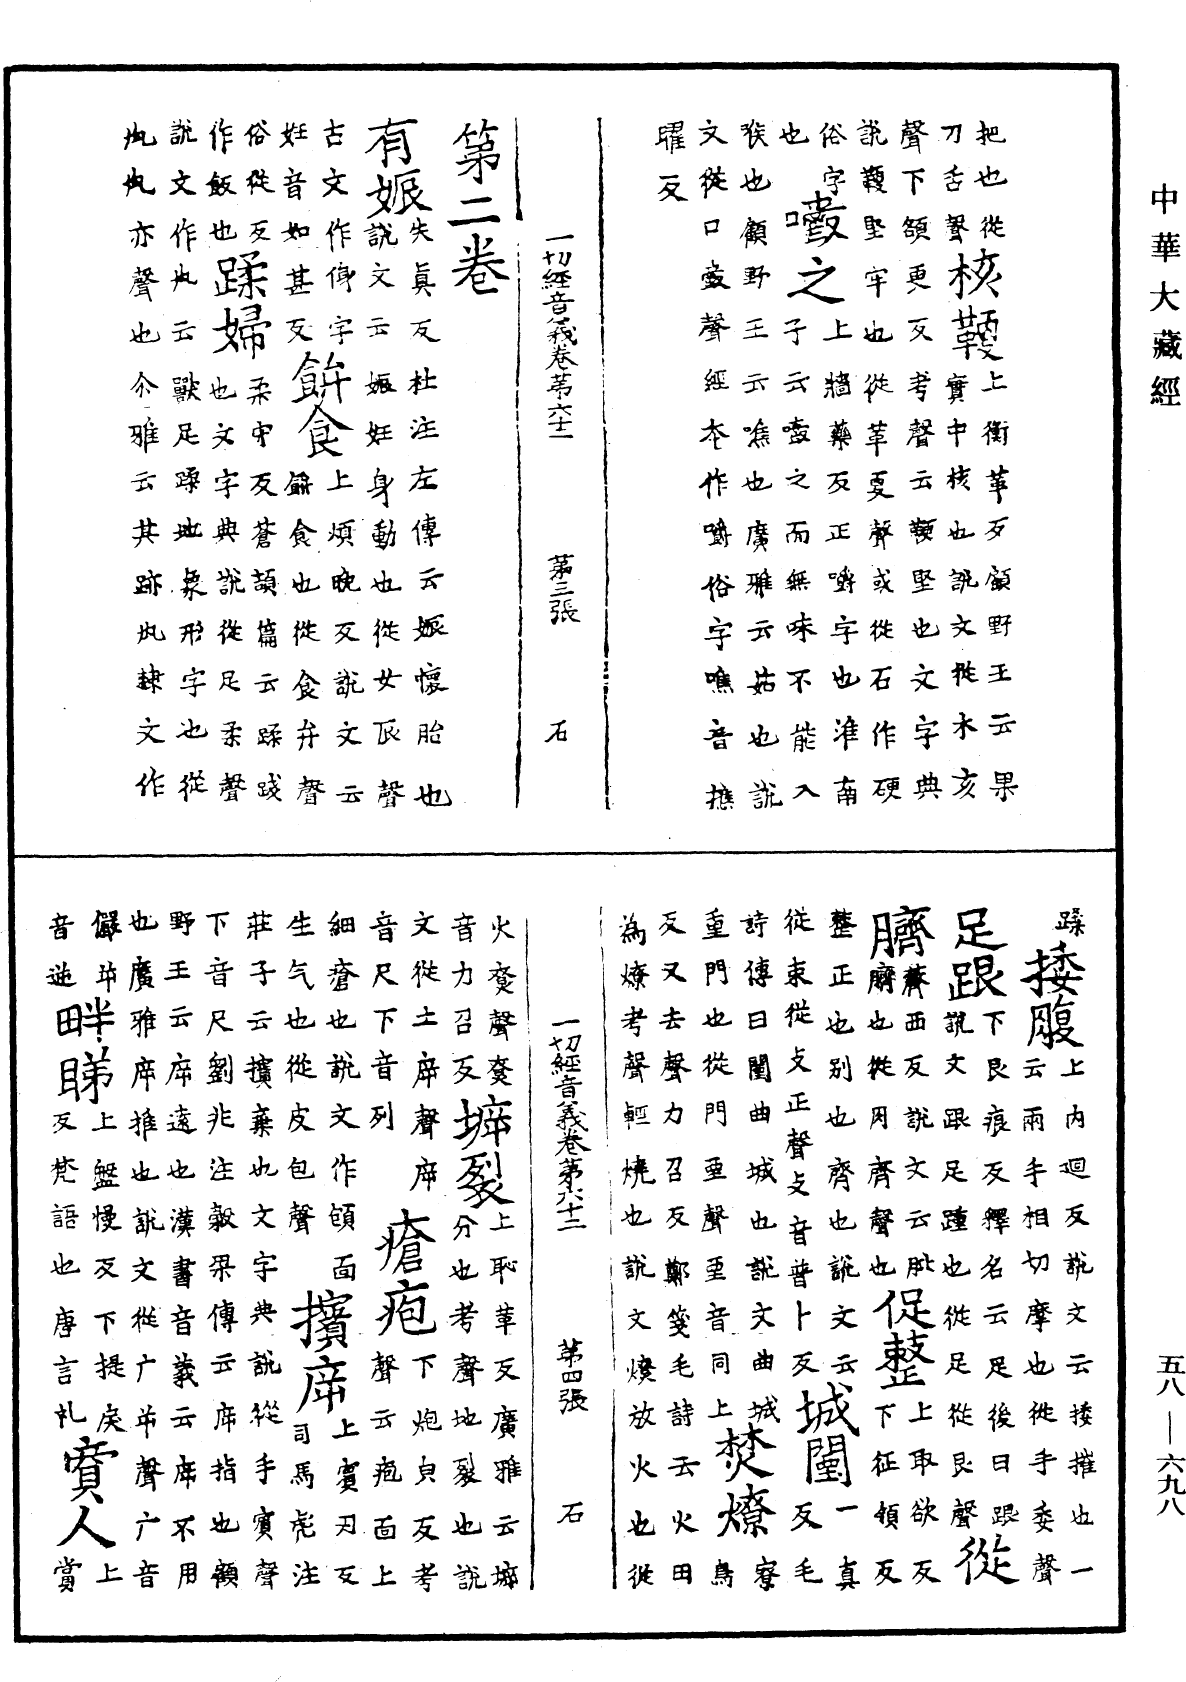 中華大藏經
把也從
刀舌聲
核鞕
上衡革反顧野王云果
實中核也說文從木亥
聲下額更反考聲云鞕堅也文字典
說鞕堅牢也從革更聲或從石作硬
俗字
也
之
上牆藥反正嚼字也淮南
子云之而無味不能入
喉也顧野王云噍也廣雅云茹也說
文從口聲經本作嚼俗字噍音樵
曜反
一切經音義卷第六十二 第三張 石
第二卷
有娠
失真反杜注左傳云娠懷胎也
說文云娠妊身動也從女辰聲
古文作㑗字
妊音如甚反
餅食
上煩晚反說文云
餅食也從食弁聲
俗從反
作飯也
蹂婦
柔帚反蒼頡篇云蹂踐
也文字典說從足柔聲
說文作禸云獸足蹂地象形字也從
禸禸亦聲也尒雅云其跡禸隷文作
蹂
捼腹
上內迴反說文云捼摧也一
云兩手相切摩也從手委聲
足跟
下艮痕反釋名云足後曰跟
說文跟足踵也從足從艮聲
從臍
薺西反說文云肶
臍也從肉齊聲也
促整
上取欲反
下征領反
整正也別也齊也說文云
從束從攴正聲攴音普卜反
城闉
一真
反毛
詩傳曰闉曲城也說文曲城
重門也從門垔聲垔音同上
焚燎
寮鳥
反又去聲力召反鄭箋毛詩云火田
為燎考聲輕燒也說文燎放火也從
一切經音義卷第六十二 第四張 石
火尞聲尞
音力召反
㙤裂
上恥革反廣雅云㙤
分也考聲地裂也說
文從土㡿聲㡿
音尺下音列
瘡疱
下炮皃反考
聲云疱面上
細瘡也說文作皰面
生气也從皮包聲
擯㡿
上賓刃反
司馬彪注
莊子云擯棄也文字典說從手賓聲
下音尺劉兆注穀梁傳云㡿指也顧
野王云㡿遠也漢書音義云㡿不用
也廣雅㡿推也說文從广屰聲广音
儼屰
音逆
畔睇
上盤慢反下提戾
反梵語也唐言礼
人
上
賞
五八—六九八